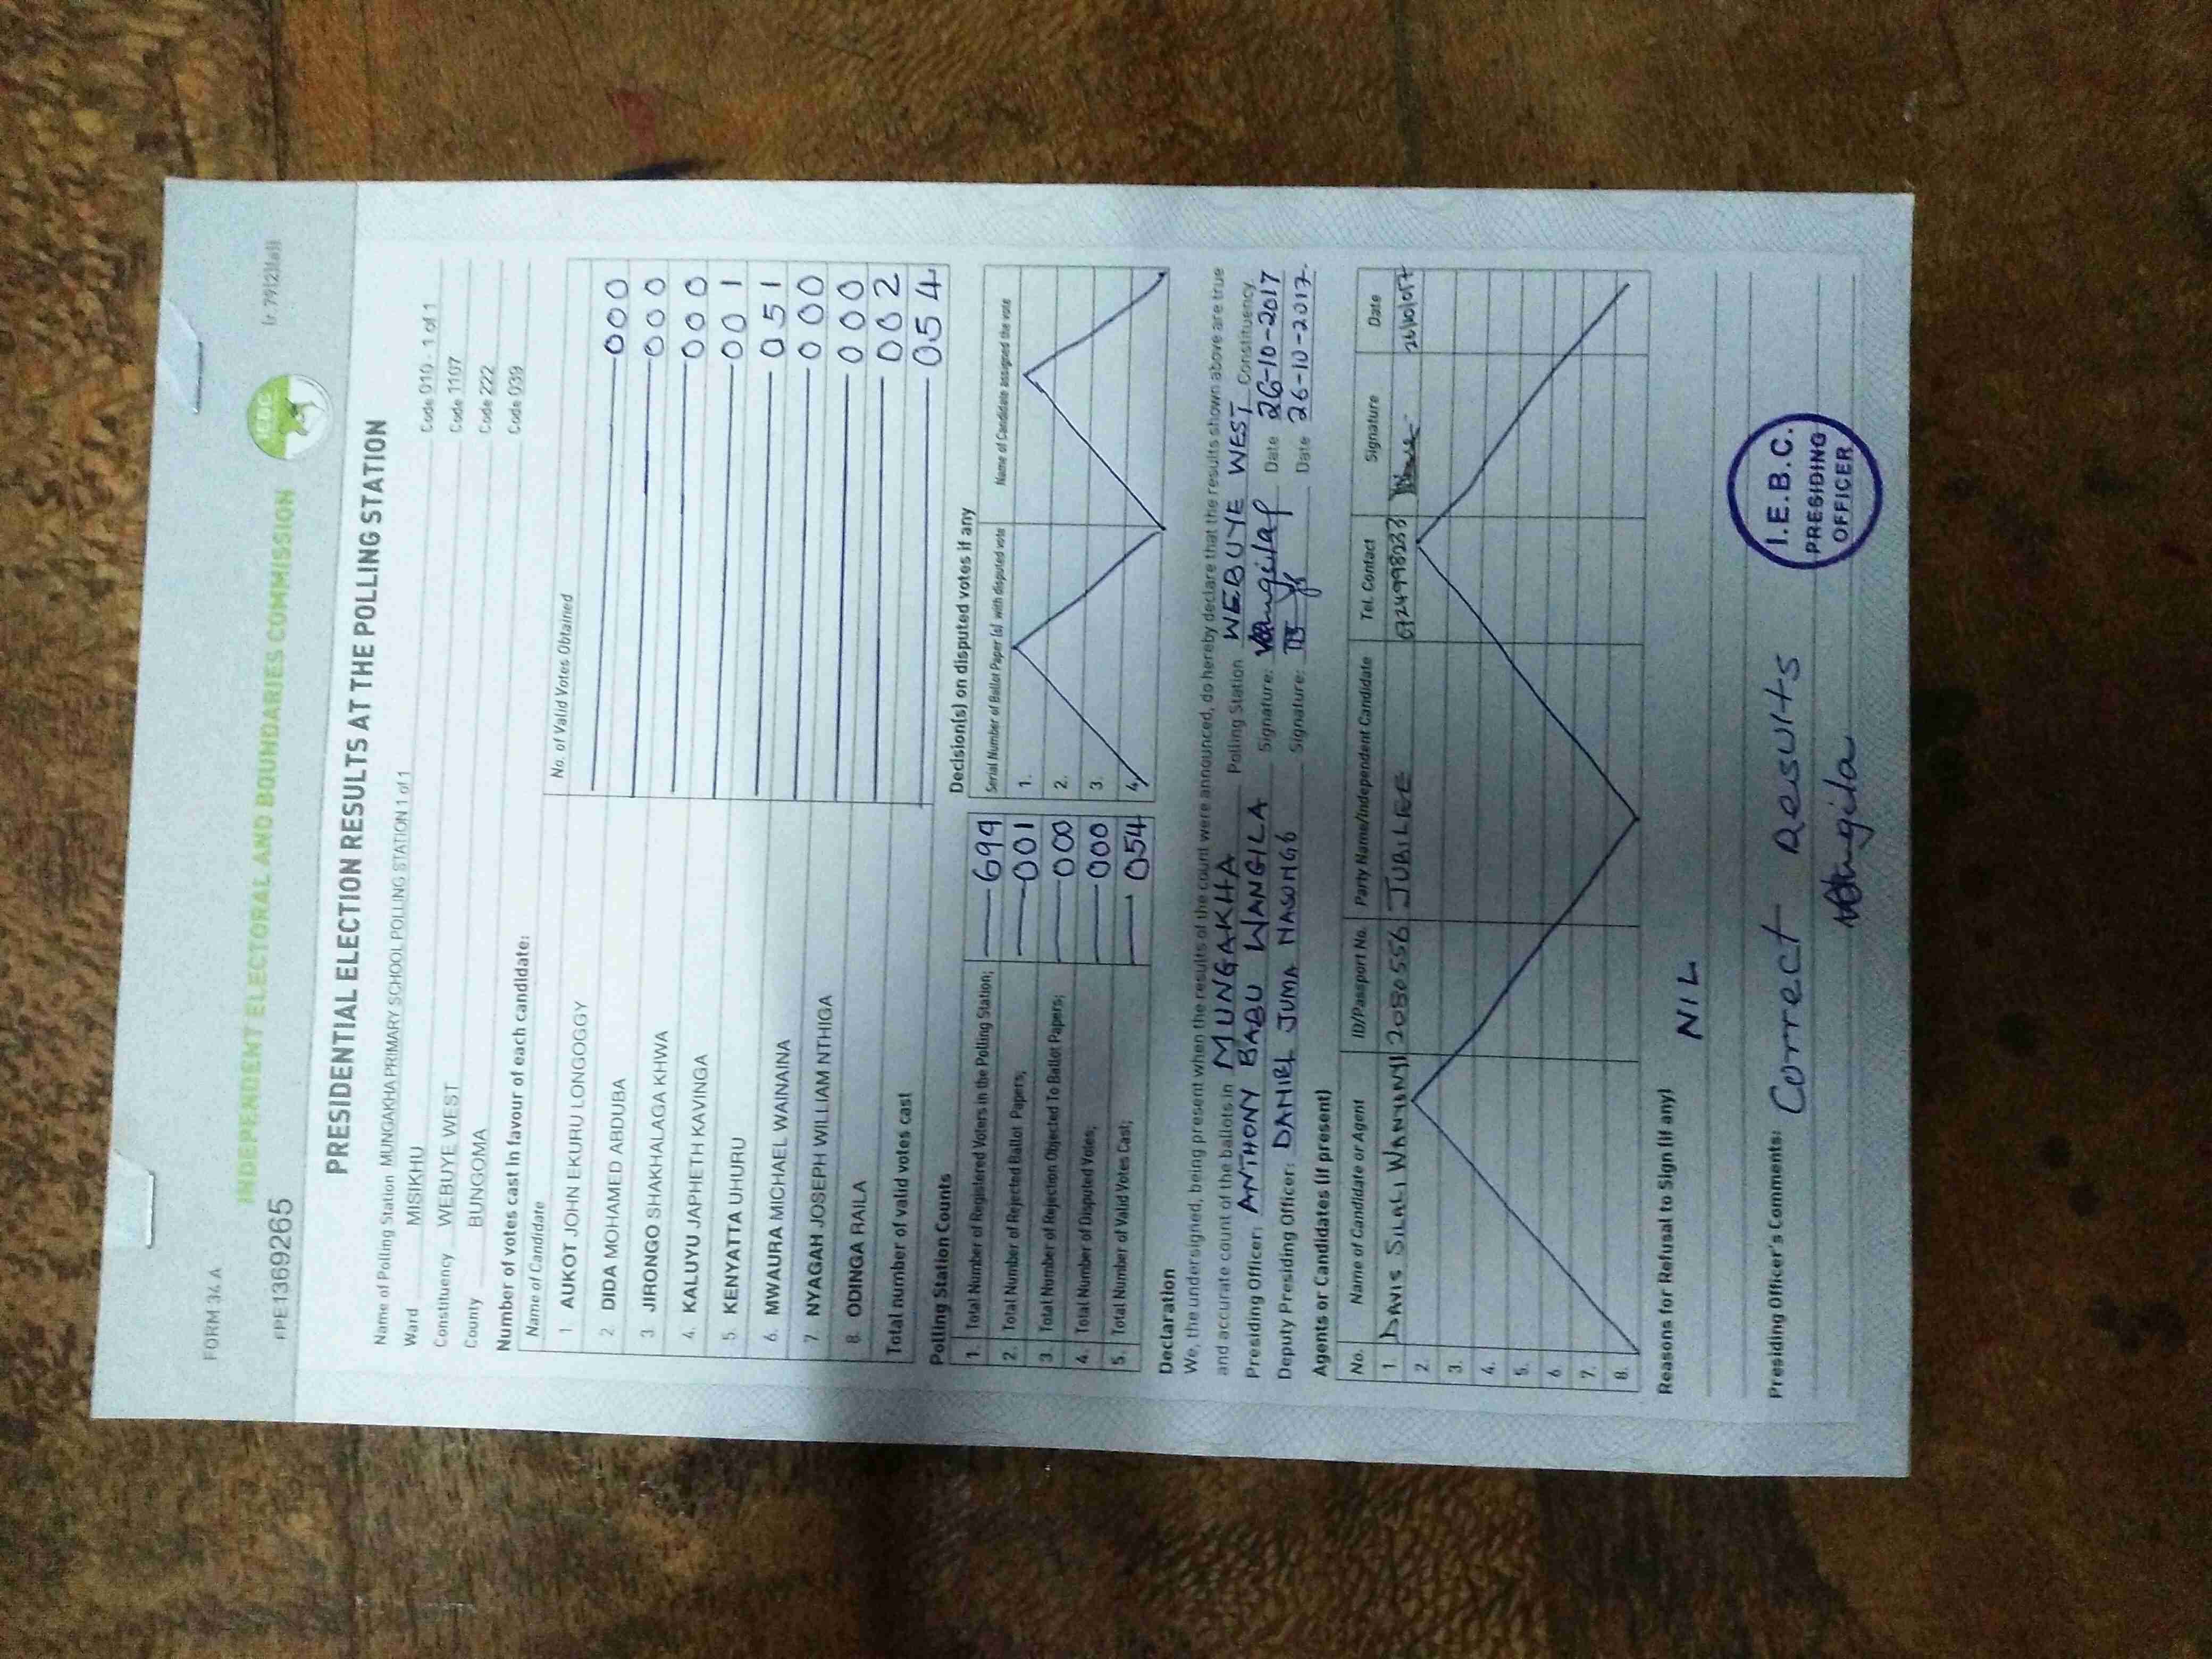 FORM 34 A
INDEPENDENT ELECTORAL AND BOUNDARIES COMMISSION
IEBC
(r 79(2)(a))
FPE1369265
PRESIDENTIAL ELECTION RESULTS AT THE POLLING STATION
Name of Polling Station MUNGAKHA PRIMARY SCHOOL POLLING STATION 1 of 1 Code 010 - 1 of 1
Ward MISIKHU Code 1107
Constituency WEBUYE WEST Code 222
County BUNGOMA Code 039
Number of votes cast in favour of each candidate:
Name of Candidate No. of Valid Votes Obtained
1 AUKOT JOHN EKURU LONGOGGY 000
2. DIDA MOHAMED ABDUBA 000
3 JIRONGO SHAKHALAGA KHWA 000
4. KALUYU JAPHETH KAVINGA 001
5. KENYATTA UHURU 051
6. MWAURA MICHAEL WAINAINA 000
7. NYAGAH JOSEPH WILLIAM NTHIGA 000
8. ODINGA RAILA 002
Total number of valid votes cast 054
Polling Station Counts
1. Total Number of Registered Voters in the Polling Station; 699
2. Total Number of Rejected Ballot Papers; 001
3. Total Number of Rejection Objected To Ballot Papers; 000
4. Total Number of Disputed Votes; 000
5. Total Number of Valid Votes Cast; 054
Decision(s) on disputed votes if any
Serial Number of Ballot Paper (s) with disputed vote Name of Candidate assigned the vote
1.
2.
3.
4.
Declaration
We, the undersigned, being present when the results of the count were announced, do hereby declare that the results shown above are true
and accurate count of the ballots in MUNGAKHA Polling Station WEBUYE WEST Constituency.
Presiding Officer: ANTHONY BABU WANGILA Signature: Date 26-10-2017
Deputy Presiding Officer: DANIEL JUMA NASONGO Signature: Date 26-10-2017
Agents or Candidates (if present)
No. Name of Candidate or Agent ID/Passport No. Party Name/Independent Candidate Tel. Contact Signature Date
1. DAVIS SILALI WANYONYI 20805561 JUBILEE 0724998233
2.
3.
4.
5.
6
7.
8.
Reasons for Refusal to Sign (if any)
NIL
Presiding Officer's Comments: Correct Results
I.E.B.C.
PRESIDING
OFFICER